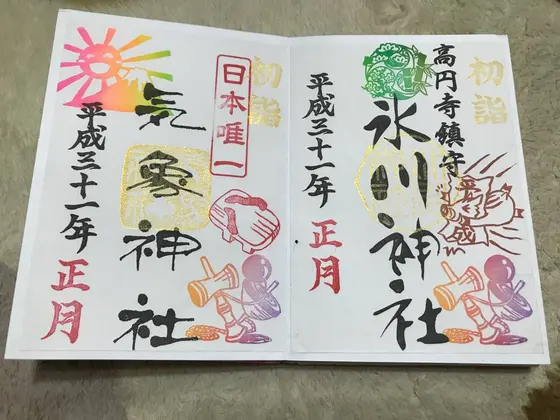 高円寺鎮守
初詣
氷川神社
平成三十一年
正月
初詣
日本唯一
気象神社
平成三十一年
正月